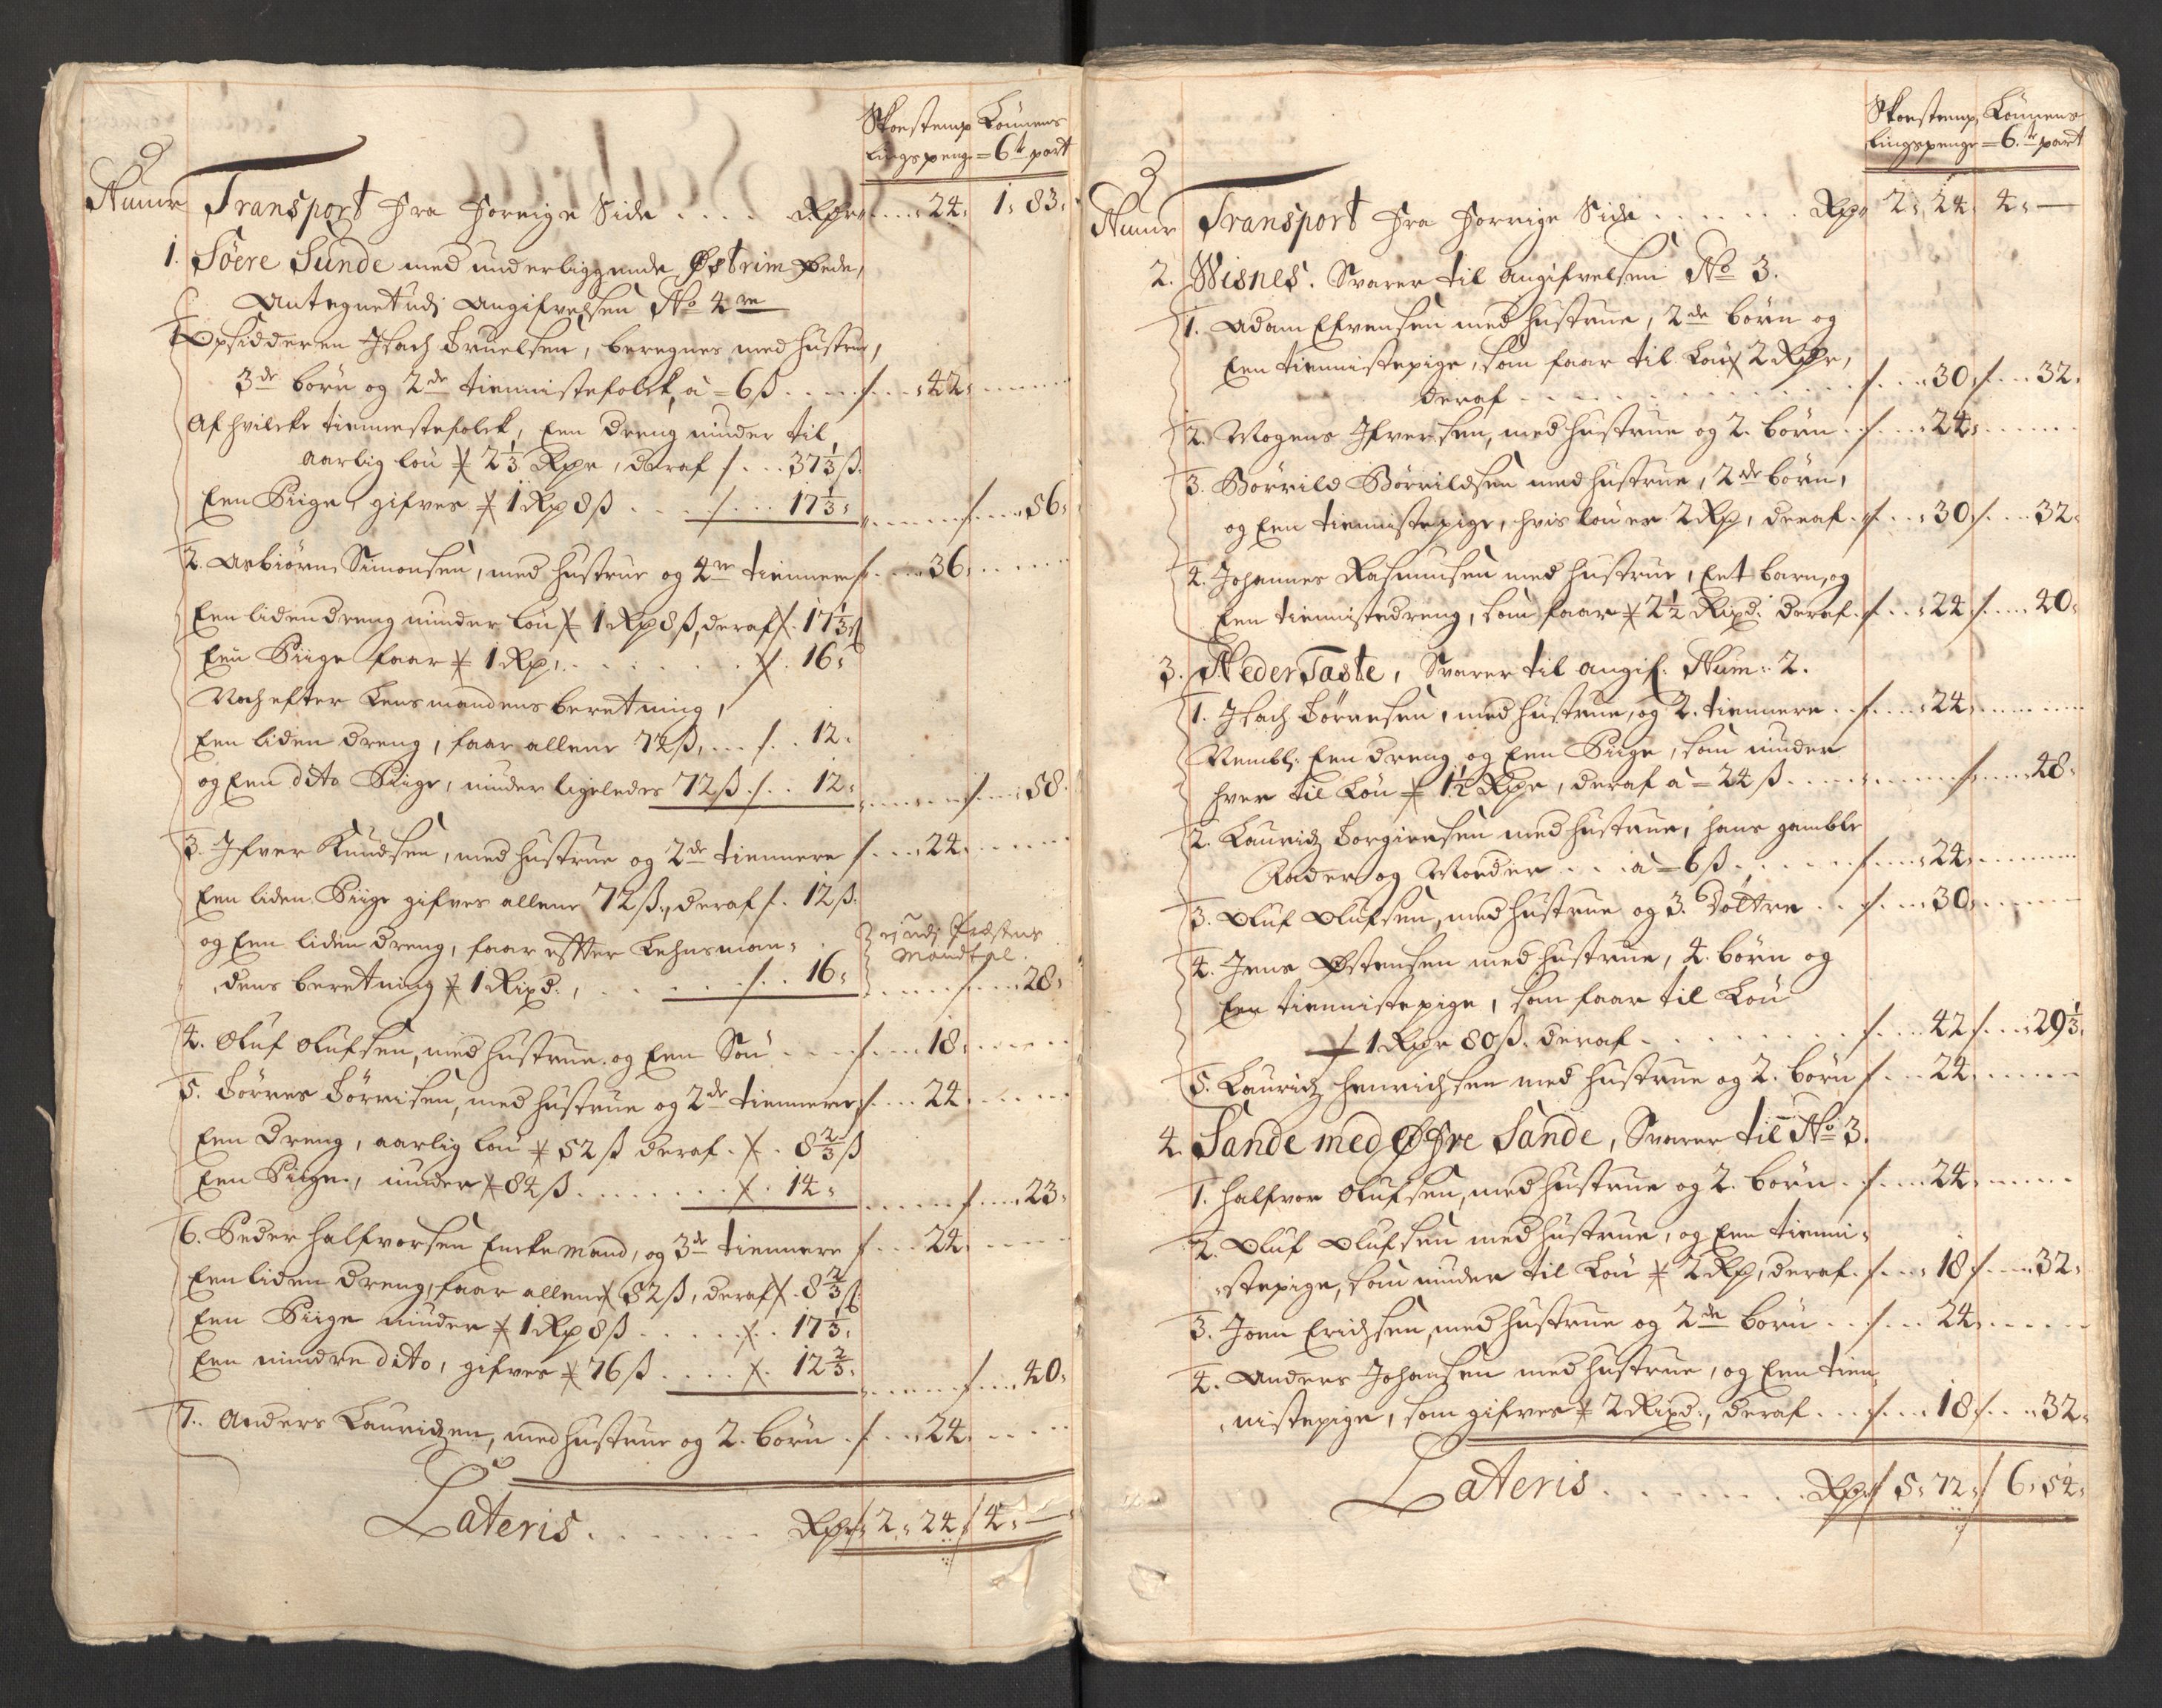 Skoestemp Lønnens
lingspenge = 6te part
Numr Transport fra forrige Side . . . . Rdr . . . . 24. 1. 83.
1. Søere Sunde med underliggende Østrim Øede,
Antegnet udj Angifvelsen No 4re
1. Opsidderen Isach Truelsen, beregnes med hustrue,
3de børn og 2de tiennistefolck, à = 6 ß . . . . 42.
Af hvilcke tiennestefolck, Een dreng nyder til
aarlig løn 2 1/3 Rdr, deraf . . . 37 1/3 ß.
Een Piige, gifves 1 Rd 8 ß . . . . . . 17 1/3. . . . . 56.
2. Asbiørn Simonsen, med hustrue og 4re tiennere . . . 36.
Een liden dreng nyder løn 1 Rd 8 ß, deraf . 17 1/3 ß
Een Piige faar 1 Rd, . . . . . . . 16.
Noch efter Lensmandens beretning,
Een liden dreng, faar allene 72 ß, . . . . . 12.
og Een dito Piige, nyder ligeledes 72 ß . . . 12. . . . . 58.
3. Ifver Knudsen, med hustrue og 2de tiennere . . . 24.
Een liden Piige gifves allene 72 ß, deraf . 12 ß.
og Een liden dreng, faar efter Lehnsman- ej udj Præstens
dens beretning 1 Rixd., . . . . . . . 16. Mandtal . . . . 28.
4. Oluf Olufsen, med hustrue og Een Søn . . . . . 18.
5. Børres Børrisen, med hustrue og 2de tiennere . . . 24
Een Dreng, aarlig løn 52 ß deraf . . 8 2/3 ß
Een Piige, nyder 84 ß . . . . . . . 14. . . . . 23.
6. Peder Halfvorsen Enckemand, og 3de tiennere . . . 24.
Een liden dreng, faar allene 52 ß, deraf . 8 2/3 ß.
Een Piige nyder 1 Rd 8 ß . . . . . . 17 1/3.
Een mindre dito, gifves 76 ß . . . . . 12 2/3. . . . . 40.
7. Anders Lauridzen, med hustrue og 2. børn . . . 24.
Lateris . . . . . . . Rdr 2. 24. 4. —
Skoestemp Lønnens
lingspenge = 6te part
Numr Transport fra forrige Side . . . . . . Rdr 2. 24. 4. —
2. Wisnes. Svarer til Angifvelsen No 3.
1. Adam Efvensen med hustrue, 2de børn og
Een tiennistepige, som faar til Løn 2 Rdr,
deraf . . . . . . . . . . . . 30. . . . 32.
2. Mogens Ifversen, med hustrue og 2. børn . . . 24.
3. Børrild Børrildsen med hustrue, 2de børn,
og Een tiennistepige, hvis løn er 2 Rd, deraf . . . 30. . . . 32.
4. Johannes Rasmusen med hustrue, Eet barn, og
Een tiennistedreng, som faar 2 1/2 Rixd. deraf . . . 24. . . . 40.
3. Neder Taste, Svarer til angif. Num: 2.
1. Isach Børresen, med hustrue, og 2. tiennere . . . 24.
Nembl. Een dreng og Een Piige, som nyder
hver til Løn 1 1/2 Rdr, deraf à = 24 ß . . . . . . 48.
2. Lauridz Torgiersen med hustrue, hans gamble
Fader og Moeder . . . à = 6 ß . . . . . 24.
3. Oluf Olufsen, med hustrue og 3. Døttre . . . 30.
4. Jens Østensen med hustrue, 4. børn og
Een tiennistepige, som faar til Løn
1 Rdr 80 ß. deraf . . . . . . . . 42. . . . 29 1/3.
5. Lauridz Henrichsen med hustrue og 2. børn . . . 24.
4. Sande med Øfre Sande, Svarer til No 3.
1. Halfvor Olufsen, med hustrue og 2. børn . . . 24.
2. Oluf Olufsen med hustrue, og Een tienni-
stepige, som nyder til Løn 2 Rd, deraf . . . 18. . . . 32.
3. Joen Erichsen, med hustrue og 2de børn . . . 24.
4. Anders Johansen med hustrue, og Een tien-
nistepige, som gifves 2 Rixd., deraf . . . . 18. . . . 32.
Lateris . . . . . . . Rdr 5. 72. 6. 54.